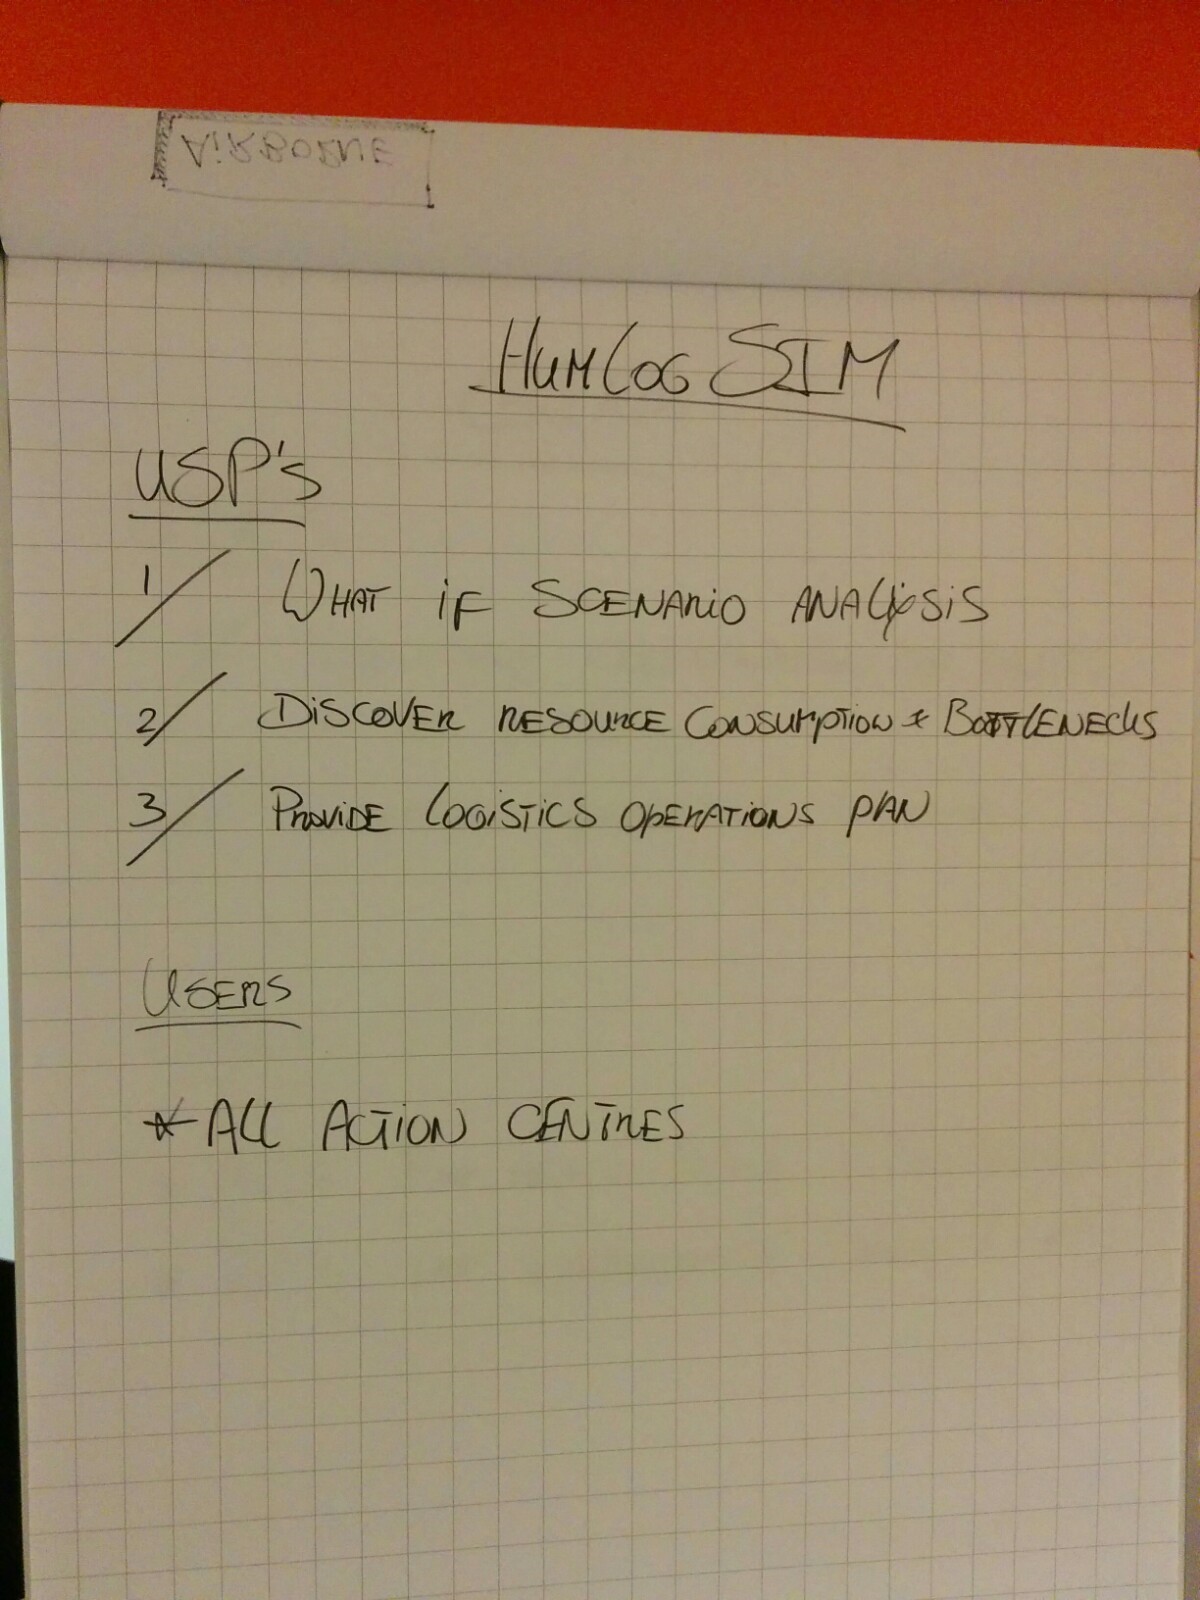 AIRBORNE
HUMLOG SIM
USP's
1/ WHAT iF SCENARiO ANALYSiS
2/ DiSCOVER RESOURCE CONSUMPTiON + BOTTLENECKS
3/ PROViDE LOGiSTiCS OPERATiONS PLAN
USERS
* ALL ACTiON CENTRES